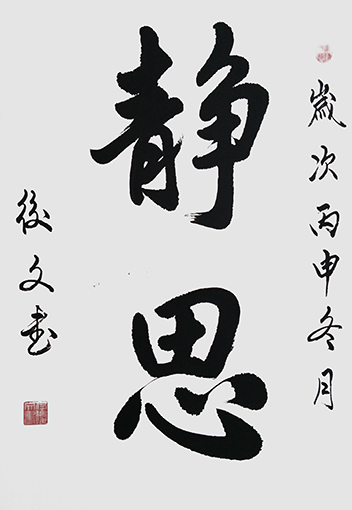 歲次丙申冬月
静思
後文書